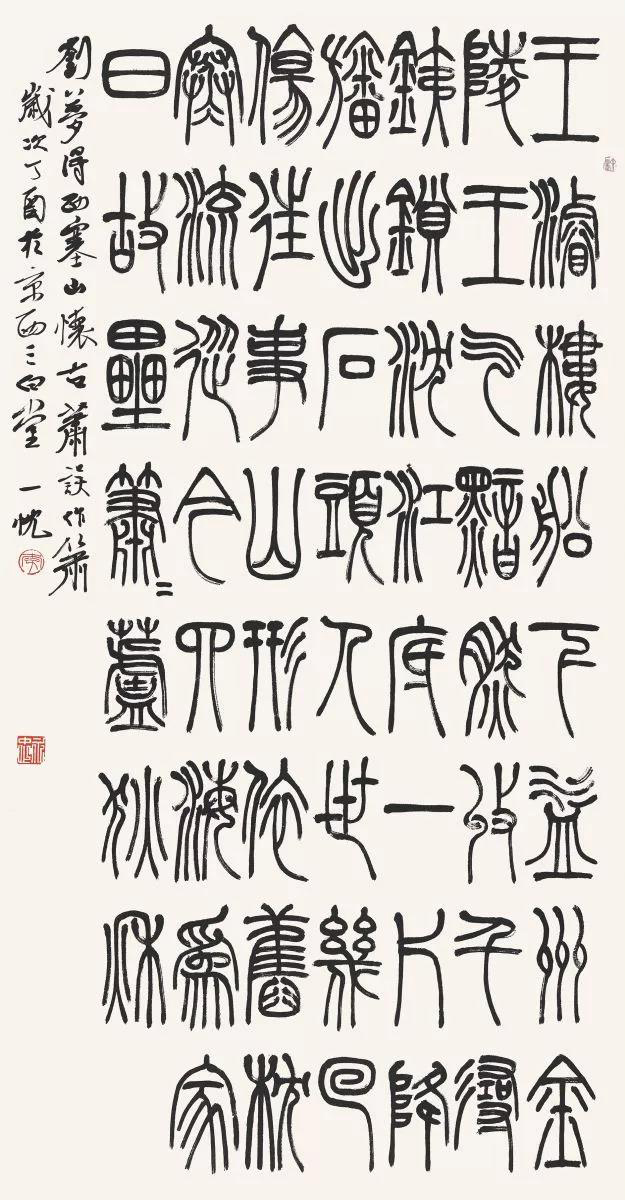 王濬樓船下益州金
陵王气黯然收千尋
銕鎖沈江底一片降
旛出石頭人世幾回
傷往事山形依舊枕
寒流從今四海為家
日故壘簫〻蘆荻秋
劉夢得西塞山懷古蕭誤作簫
歲次丁酉於京西三白堂一忱